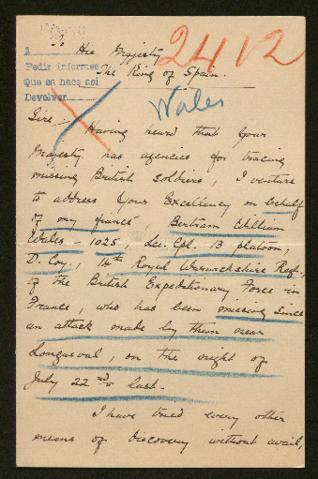 2412
To His Majesty
The King of Spain.
Pedir informes
Que se hace así
Devolver
Wales
Sire,- Having heard that Your
Majesty has agencies for tracing
missing British soldiers, I venture
to address Your Excellency on behalf
of my fiancé Bertram William
Wales - 1025, Lce. Cpl. 13 platoon,
D. Coy., 14th Royal Warwickshire Regt.,
of the British Expeditionary Force in
France, who has been missing since
an attack made by them near
Longueval, on the night of
July 22nd last.
I have tried every other
means of discovery without avail,